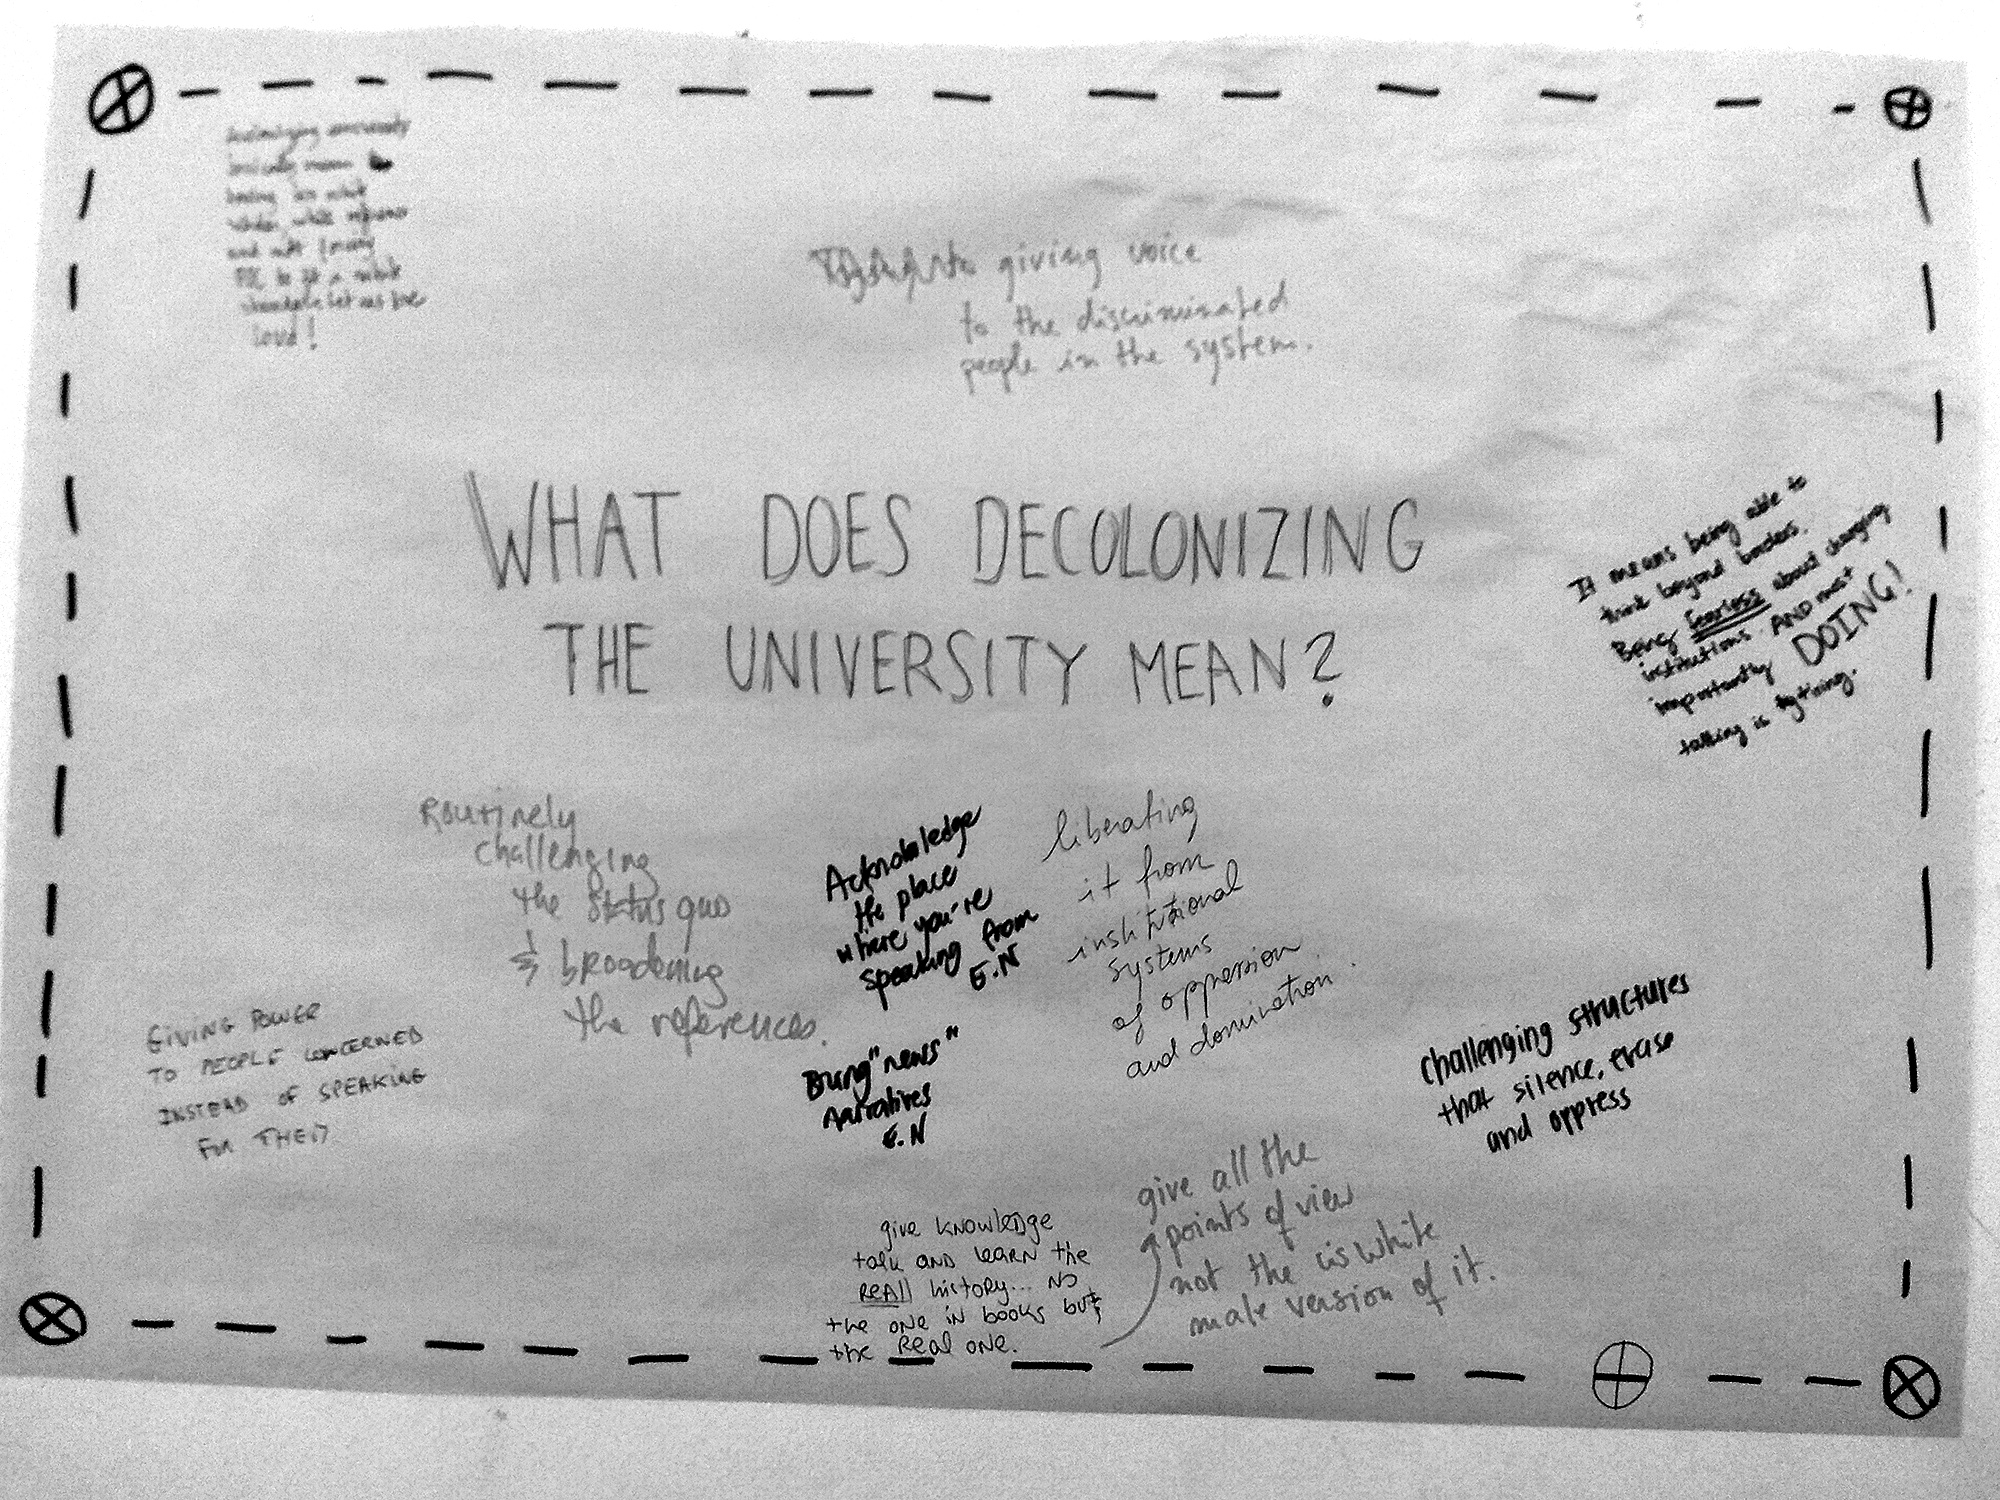 basically mean
having
white
and not forcing
POC to fit a white
let us be
loud!
giving voice
to the discriminated
people in the system.
WHAT DOES DECOLONIZING
THE UNIVERSITY MEAN?
It means being able to
think beyond borders.
Being fearless about changing
institutions. AND most
importantly DOING!
talking is tiring.
Routinely
challenging
the status quo
& broadening
the references.
Acknowledge
the place
where you're
speaking from
E.N
liberating
it from
institutional
systems
of oppression
and domination.
GIVING POWER
TO PEOPLE CONCERNED
INSTEAD OF SPEAKING
FOR THEM
Bring "news"
narratives
E.N
challenging structures
that silence, erase
and oppress
give knowledge
talk AND learn the
ReAll history... No
the one in books but,
the Real one.
give all the
points of view
not the cis white
male version of it.